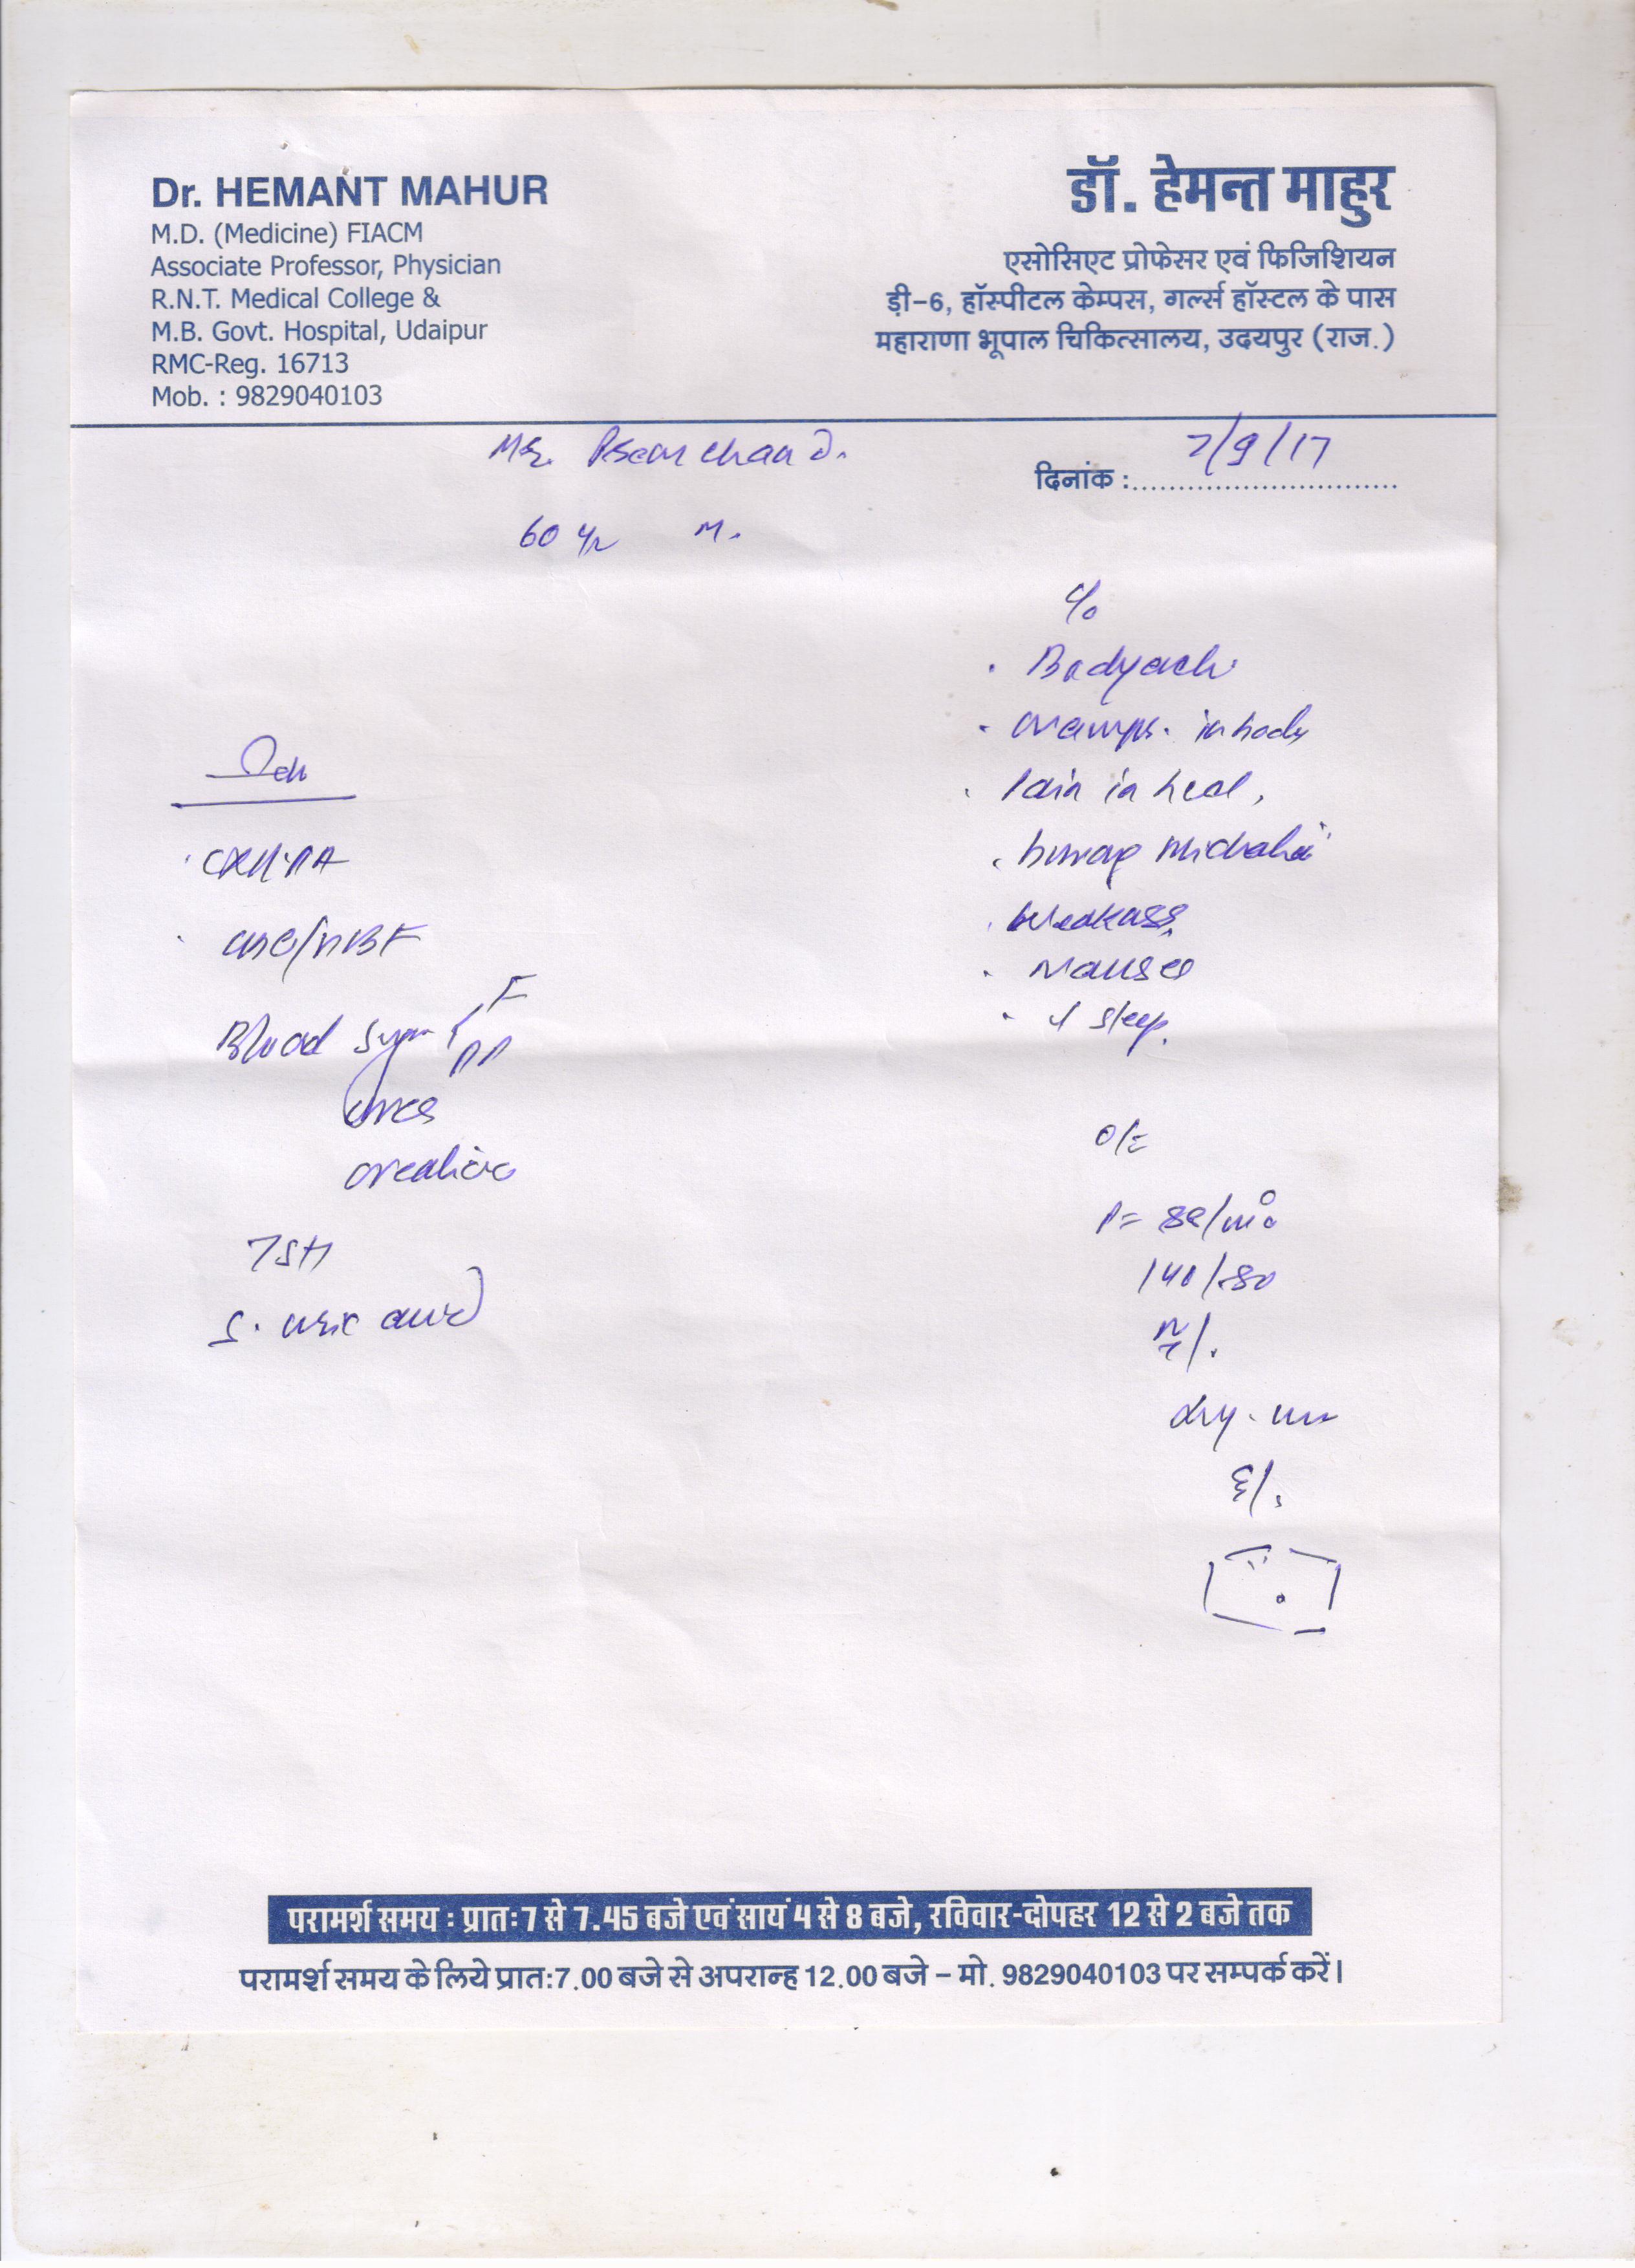 Dr. HEMANT MAHUR
M.D. (Medicine) FIACM
Associate Professor, Physician
R.N.T. Medical College &
M.B. Govt. Hospital, Udaipur
RMC-Reg. 16713
Mob. : 9829040103
डॉ. हेमन्त माहुर
एसोसिएट प्रोफेसर एवं फिजिशियन
ड़ी-6, हॉस्पीटल केम्पस, गर्ल्स हॉस्टल के पास
महाराणा भूपाल चिकित्सालय, उदयपुर (राज.)
Mr.
दिनांक : 7/9/17
60 yr M.
c/o
Bodyache
cramps. in body
Pain in heel,
weakness
Nausea
↓ sleep.
Adv
CBC/PBF
Blood Sugar F
PP
Urea
creatinine
TSH
S. uric acid
O/E
140/80
परामर्श समय : प्रातः 7 से 7.45 बजे एवं सायं 4 से 8 बजे, रविवार-दोपहर 12 से 2 बजे तक
परामर्श समय के लिये प्रात:7.00 बजे से अपरान्ह 12.00 बजे – मो. 9829040103 पर सम्पर्क करें।